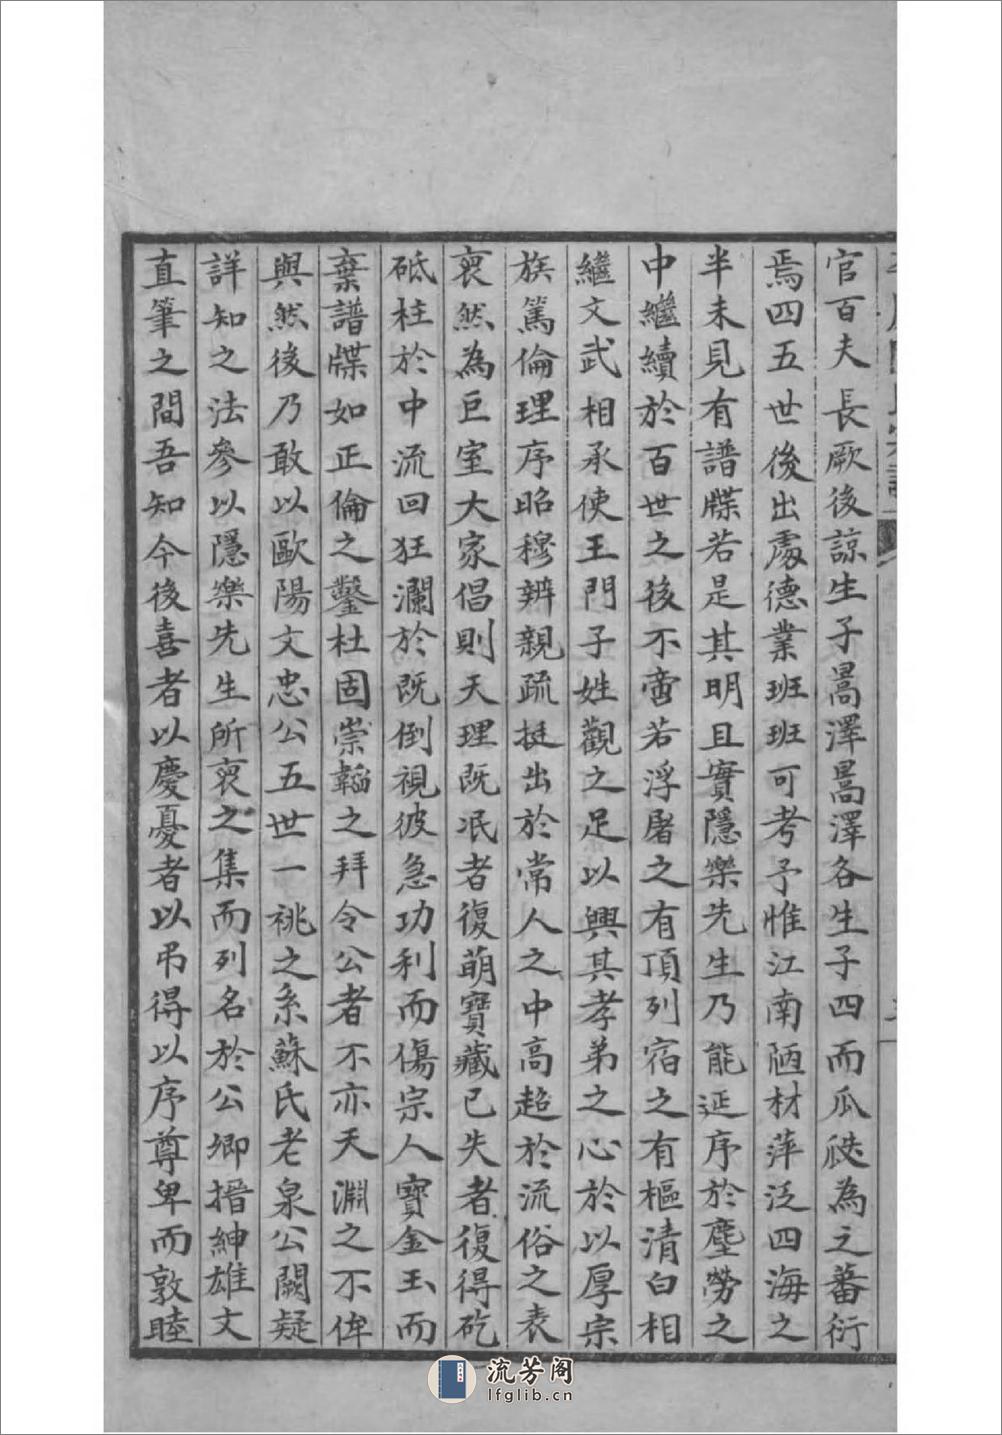 官百夫長厥後諒生子暠澤暠澤各生子四而瓜瓞為之蕃衍
焉四五世後出處德業班班可考予惟江南陋材萍泛四海之
半未見有譜牒若是其明且實隱樂先生乃能延序於塵勞之
中繼續於百世之後不啻若浮屠之有頂列宿之有樞清白相
繼文武相承使王門子姓觀之足以興其孝弟之心於以厚宗
族篤倫理序昭穆辨親疏挺出於常人之中高超於流俗之表
裒然為巨室大家倡則天理既泯者復萌寶藏已失者復得矻
砥柱於中流回狂瀾於既倒視彼急功利而傷宗人寶金玉而
棄譜牒如正倫之鑿杜固崇韜之拜令公者不亦天淵之不侔
與然後乃敢以歐陽文忠公五世一祧之系蘇氏老泉公闕疑
詳知之法參以隱樂先生所裒之集而列名於公卿搢紳雄文
直筆之間吾知今後喜者以慶憂者以弔得以序尊卑而敦睦
流芳阁
lfglib.cn